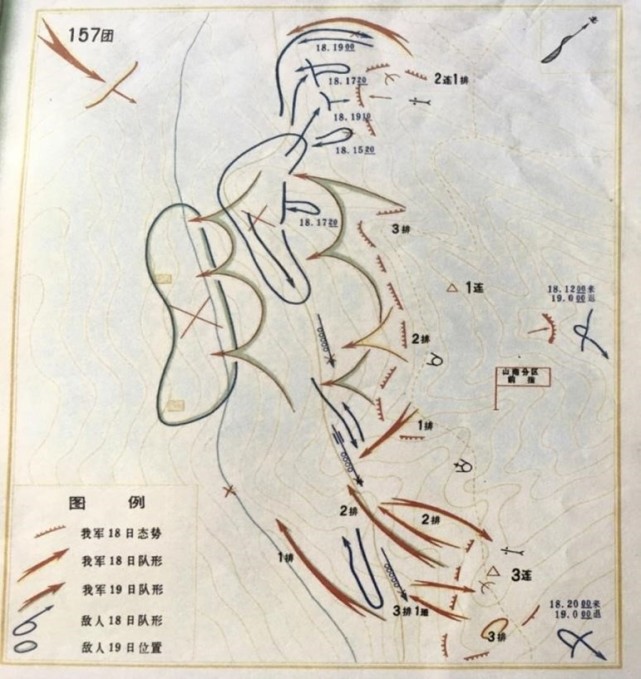 157团
18.1900
18.1720
2连1排
18.1910
18.1520
18.1720
3排
1连
18.1200来
19.0200退
2排
山南分区
前指
1排
2排
2排
1排
3连
3排1班
3排
18.2000来
19.0100退
图 例
我军18日态势
我军18日队形
我军19日队形
敌人18日队形
敌人19日位置